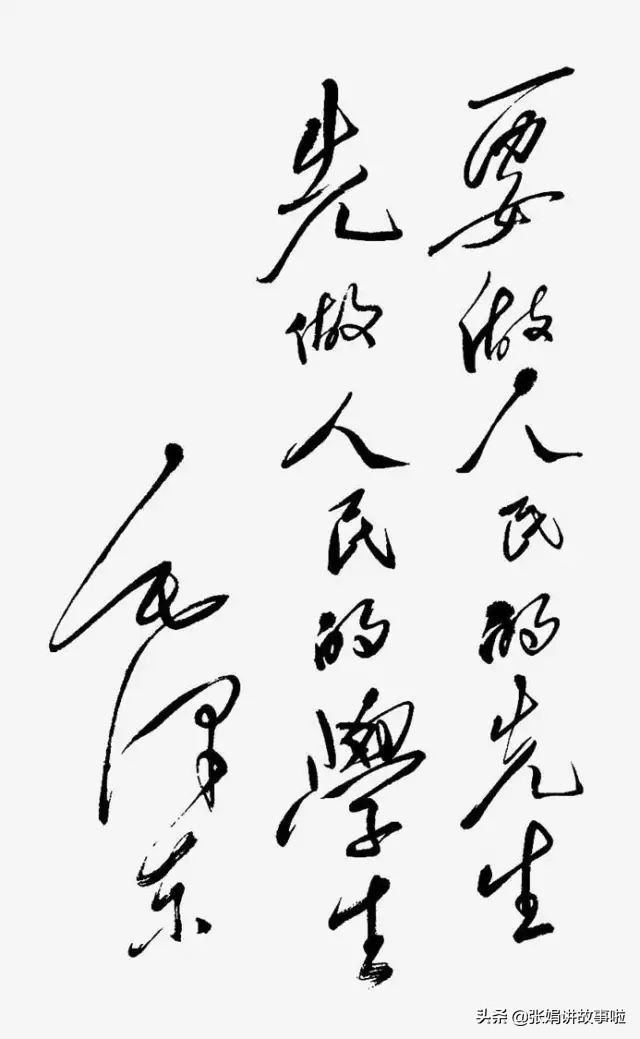 要做人民的先生
先做人民的學生
毛泽东
头条 @张娟讲故事啦